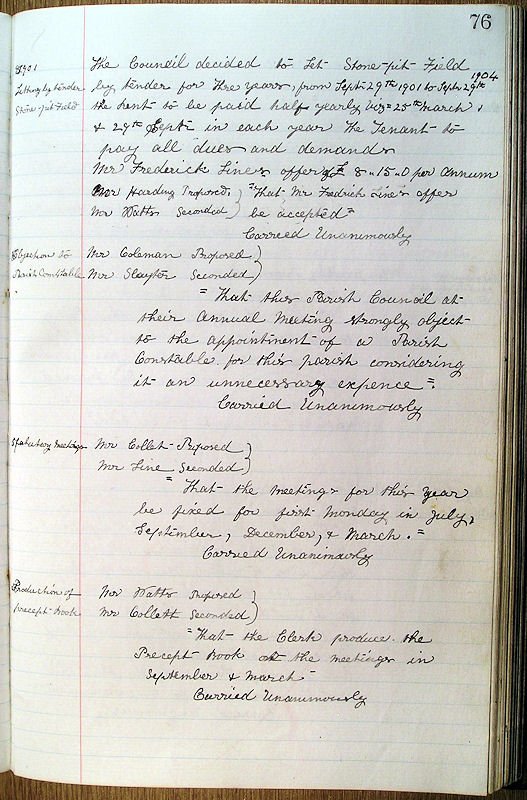 76
1901
Letting by tender
Stone-pit Field
The Council decided to Let Stone-pit Field
by tender for three years, from Sept 29th 1901 to Sept 29th 1904
the rent to be paid half yearly viz= 25th March
& 29th Sept in each year The Tenant to
pay all dues and demands
Mr Frederick Line's offer of £ 8"15"0 per annum
Mr Harding Proposed, ) "That Mr Fredrick Line's offer
Mr Watts Seconded ) be accepted"
Carried Unanimously
Objection to
Parish Constable
Mr Coleman Proposed )
Mr Slayter Seconded )
"That this Parish Council at
their Annual Meeting strongly object
to the appointment of a Parish
Constable for this parish considering
it an unnecessary expence".
Carried Unanimously
Statutory meetings
Mr Collet Proposed )
Mr Line Seconded )
"That the meetings for this year
be fixed for first Monday in July,
September, December, & March."
Carried Unanimously
Production of
precept Book
Mr Watts Proposed )
Mr Collett Seconded )
"That the Clerk produce the
Precept Book at the meetings in
September & March"
Carried Unanimously